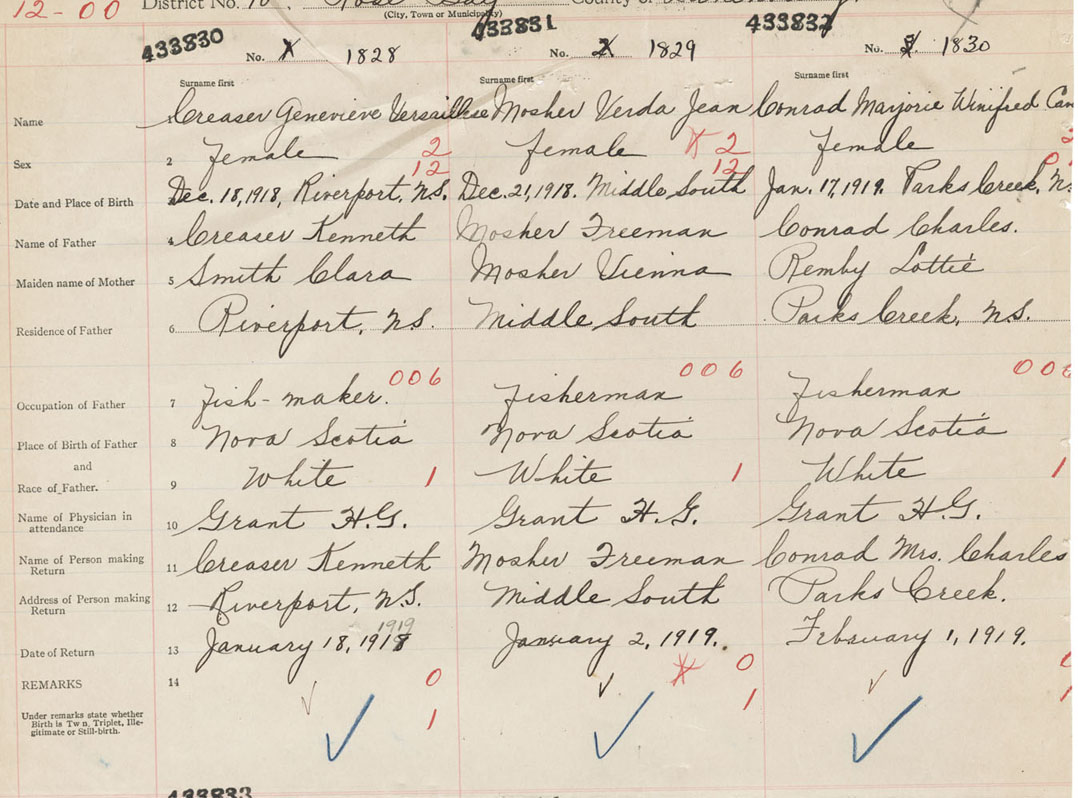 12-00 District No. 10, Rose Bay County of
(City, Town or Municipality)
433830 433831 433832
No. 1 1828 No. 2 1829 No. 3 1830
Surname first Surname first Surname first
Name 1 Creaser Genevieve Versaillese Mosher Verda Jean Conrad Marjorie Winifred
Sex 2 Female 2 Female X 2 Female 2
12 12
Date and Place of Birth Dec. 18, 1918, Riverport, N.S. Dec. 21, 1918. Middle South Jan. 17, 1919. Parks Creek, N.S.
Name of Father 4 Creaser Kenneth Mosher Freeman Conrad Charles.
Maiden name of Mother 5 Smith Clara Mosher Vienna Remby Lottie
Residence of Father 6 Riverport, N.S. Middle South Parks Creek, N.S.
006 006 006
Occupation of Father 7 Fish-maker. Fisherman Fisherman
Place of Birth of Father 8 Nova Scotia Nova Scotia Nova Scotia
and
Race of Father. 9 White 1 White 1 White 1
Name of Physician in
attendance 10 Grant H.G. Grant H.G. Grant H.G.
Name of Person making
Return 11 Creaser Kenneth Mosher Freeman Conrad Mrs. Charles
Address of Person making
Return 12 Riverport, N.S. Middle South Parks Creek.
1919
Date of Return 13 January 18, 1918 January 2, 1919. February 1, 1919.
REMARKS 14 0 0 0
Under remarks state whether
Birth is Twn, Triplet, Ille-
gitimate or Still-birth. 1 1 1
433833